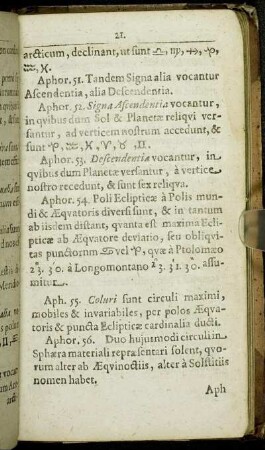 21.
arcticum, declinant, ut sunt ♎, ♏, ♐, ♑,
♒, ♓.
Aphor. 51. Tandem Signa alia vocantur
Ascendentia, alia Descendentia.
Aphor. 52. Signa Ascendentia vocantur,
in qvibus dum Sol & Planetæ reliqvi ver-
santur, ad verticem nostrum accedunt, &
sunt ♑, ♒, ♓, ♈, ♉, ♊.
Aphor. 53. Descendentia vocantur, in
qvibus dum Planetæ versantur, à vertice
nostro recedunt, & sunt sex reliqva.
Aphor. 54. Poli Eclipticæ à Polis mun-
di & Æqvatoris diversi sunt, & in tantum
ab iisdem distant, qvanta est maxima Ecli-
pticæ ab Æqvatore deviatio, seu obliqvi-
tas punctorum ♋ vel ♑, qvæ à Ptolomæo
2°3. 3 0. à Longomontano 2°3. 3'1. 3"0. assu-
mitur.
Aph. 55. Coluri sunt circuli maximi,
mobiles & invariabiles, per polos Æqva-
toris & puncta Eclipticæ cardinalia ducti.
Aphor. 56. Duo hujusmodi circuli in
Sphæra materiali repræsentari solent, qvo-
rum alter ab Æqvinoctiis, alter à Solstitiis
nomen habet.
Aph